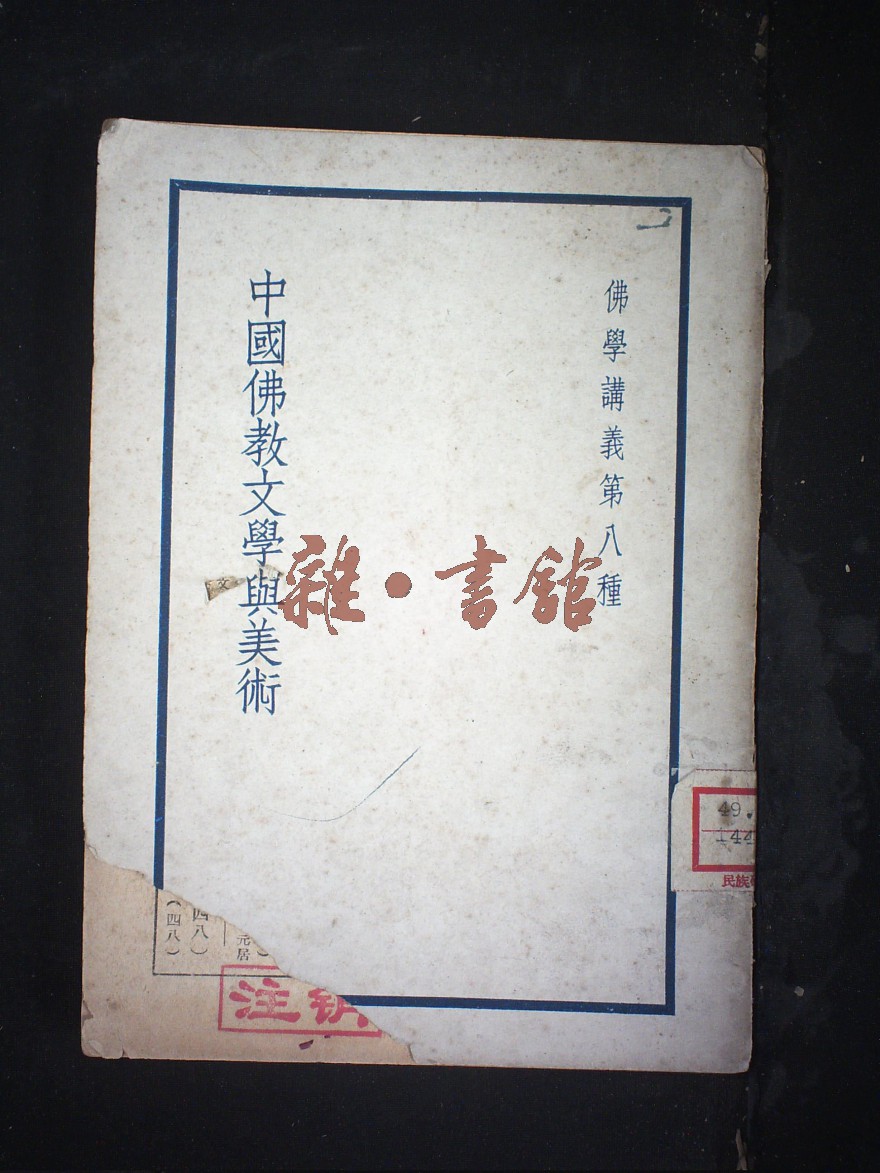 佛學講義第八種
中國佛教文學與美術
雜·書館
文
49.
144
民族
元居
四八）
（四八）
注销